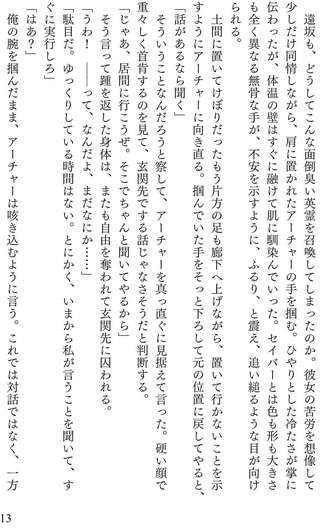 遠坂も、どうしてこんな面倒臭い英霊を召喚してしまったのか。彼女の苦労を想像して
少しだけ同情しながら、肩に置かれたアーチャーの手を掴む。ひやりとした冷たさが掌に
伝わったが、体温の壁はすぐに融けて肌に馴染んでいった。セイバーとは色も形も大きさ
も全く異なる無骨な手が、不安を示すように、ふるり、と震え、追い縋るような目が向け
られる。
土間に置いてけぼりだったもう片方の足も廊下へ上げながら、置いて行かないことを示
すようにアーチャーに向き直る。掴んでいた手をそっと下ろして元の位置に戻してやると、
「話があるなら聞く」
そういうことなんだろうと察して、アーチャーを真っ直ぐに見据えて言った。硬い顔で
重々しく首肯するのを見て、玄関先でする話じゃなさそうだと判断する。
「じゃあ、居間に行こうぜ。そこでちゃんと聞いてやるから」
そう言って踵を返した身体は、またも自由を奪われて玄関先に囚われる。
「うわ！　――って、なんだよ、まだなにか……」
「駄目だ。ゆっくりしている時間はない。とにかく、いまから私が言うことを聞いて、す
ぐに実行しろ」
「はあ？」
俺の腕を掴んだまま、アーチャーは咳き込むように言う。これでは対話ではなく、一方
13